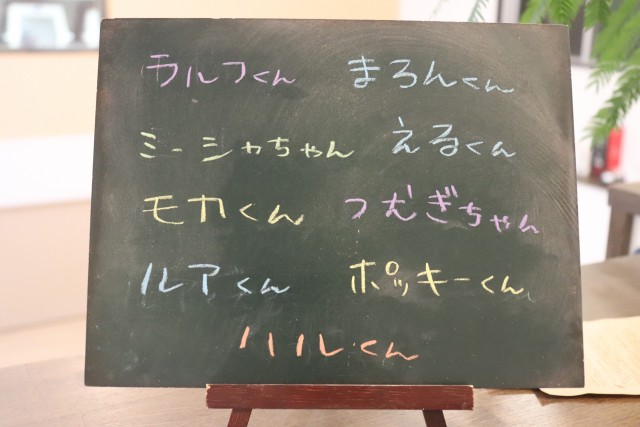 ラルフくん まろんくん
ミーシャちゃん えるくん
モカくん つむぎちゃん
ルアくん ポッキーくん
ハルくん